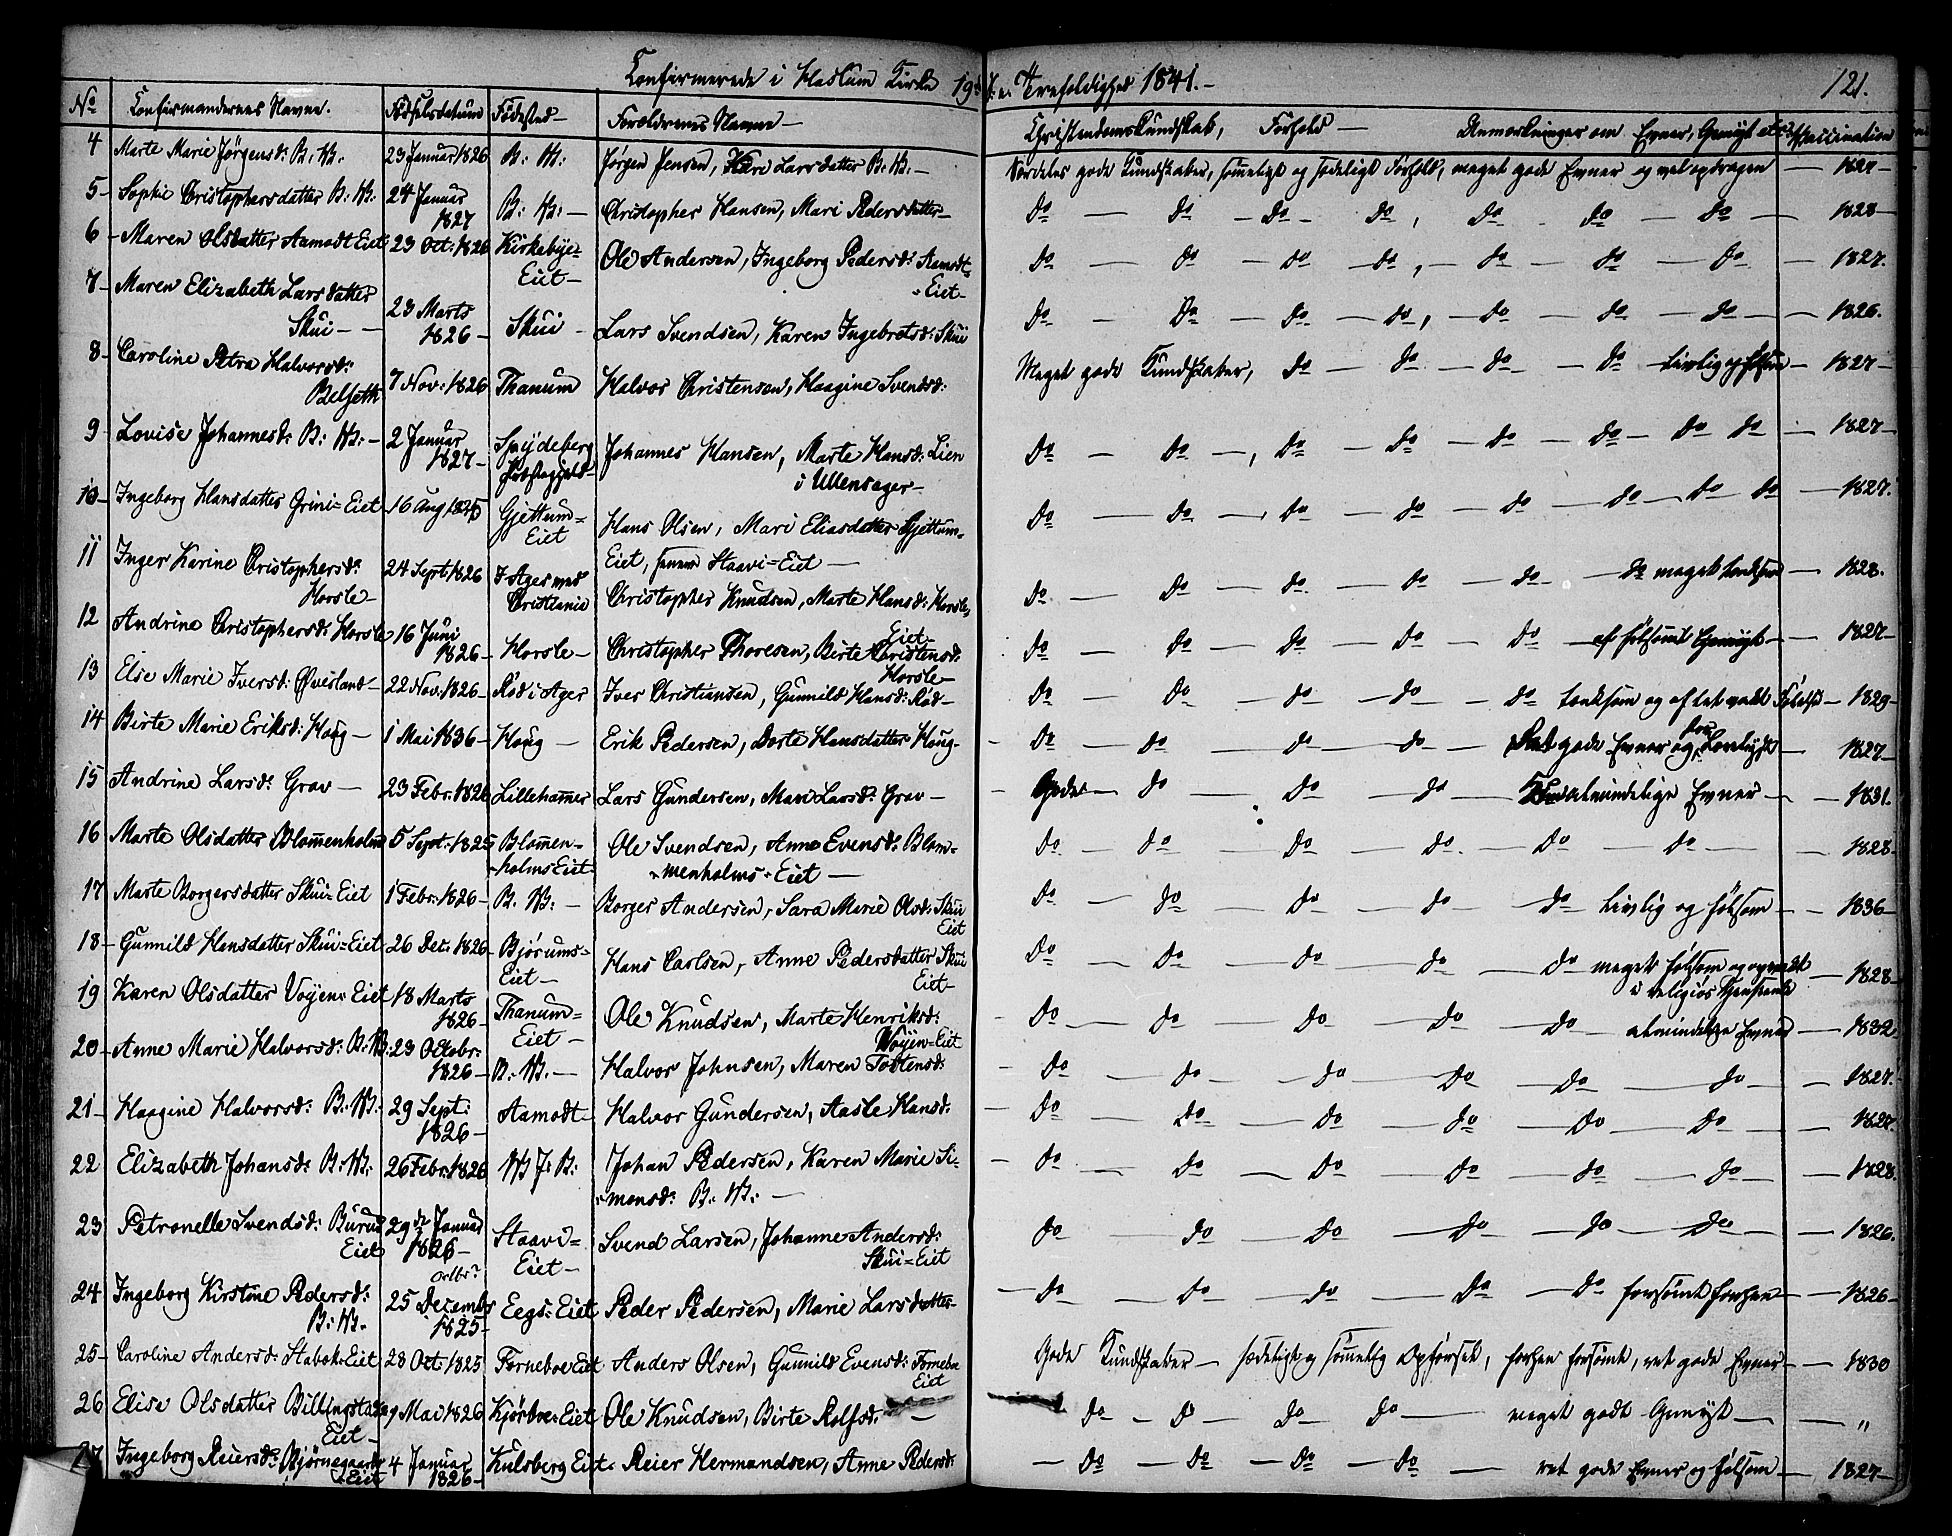 Confirmerede i Haslum Kirke 19de S. e. Trefoldighed 1841.- 121.
No Confirmandernes Navne. Fødselsdatum Fødested- Forældrenes Navne- Christendomskundskab, Forhold- Anmærkninger om Evner, Gemyt etc. Vaccination
4 Marte Marie Jörgensd: B: W: 23 Januar 1826 B: W: Jørgen Jensen, Kari Larsdatter B: W:- Særdeles gode Kundskaber, sömeligt og sædeligt Forhold, meget gode Evner og vel opdragen - 1827-
5- Sophie Christophersdatter B: W: 24 Januar
1827 B: W:- Christopher Hansen, Mari Pedersdatter- Do - Do - Do - Do, Do - Do - Do - 1828-
6 - Maren Olsdatter Aamodt Eiet 23 Oct: 1826 Kirkebye=
Eiet- Ole Andersen, Ingeborg Pedersd: Aamodt=
Eiet- Do - Do - Do - Do, - Do - Do - Do - 1827.
7- Maren Elizabeth Larsdatter
Skui- - 23 Marts
1826- Skui - Lars Svendsen, Karen Ingebretsd: Skui Do - Do - Do - Do, - Do - Do - Do - 1826.
8- Caroline Petra Halvorsd:
Belseth 7 Nov: 1826 Thanum Halvor Christensen, Haagine Svendsd: Meget gode Kundskaber, Do - Do - Do - Do livlig og følsom - 1827-
9- Lovise Johannesd: B: W:- 2 Januar
1827- Spydeberg
Præstegjeld- Johannes Hansen, Marte Hansd: Lien
i Ullensager- Do - Do -, Do - Do - Do - Do - Do Do - 1827-
10- Ingeborg Hansdatter Grini=Eiet 16 Aug 1826 Gjettum=
Eiet Hans Olsen, Mari Eliasdatter Gjettum=
Eiet, Staavi=Eiet - Do - Do - Do - Do - Do - Do - Do Do - 1827.
11 Inger Karine Christophersd:
Horsle- 24 Sept 1826 I Ager ved
Christiania Christopher Knudsen, Marte Hansd: Horsle=
Eiet- Do - Do - Do - Do - Do - Do meget tænksom - 1828.
12 Andrine Christophersd: Horsle 16 Juni
1826- Horsle- Christopher Thoresen, Birte Christensd:
Horsle- Do - Do - Do - Do - Do af følsomt Gemyt - 1827-
13 Else Marie Iversd: Øverland- 22 Nov. 1826- Röd i Ager Iver Christiansen, Gunnild Hansd: Röd- Do - Do - Do - Do - Do tænksom og af 1829-
14 Birte Marie Eriksd: Houg- 1 Mai 1836- Houg - Erik Pedersen, Dorte Hansdatter Houg- - Do - Do - Do - Do - gode Evner og - 1827-
15 Andrine Larsd: Grav- 23 Febr: 1826 Lillehamer Lars Gundersen, Mari Larsd: Grav- - Gode- Do - Do - Do - almindelige Evner - 1831.
16 Marte Olsdatter Blommenholm 5 Sept: 1825 Blommen=
holms Eiet Ole Svendsen, Anne Evensd: Blom=
menholms=Eiet - Do - Do - Do - Do - Do - Do - 1828-
17 Marte Borgersdatter Skui=Eiet 1 Febr: 1826- B. W: - Borger Andersen, Sara Marie Olsd: Skui
Eiet Do - Do - Do - Do - Do livlig og følsom - 1836-
18- Gunnild Hansdatter Skui=Eiet 26 Dec: 1826- Bjørums=
Eiet- Hans Carlsen, Anne Pedersdatter Skui
Eiet- Do - Do - Do - Do - Do meget følsom og opvakt
i religiøs Henseende - 1828-
19 Karen Olsdatter Voyen=Eiet 18 Marts
1826- Thanum=
Eiet - Ole Knudsen, Marte Henriksd:
Voyen=Eiet - Do - Do - Do - Do - Do almindelige Evner - 1832-
20- Anne Marie Halvorsd: B: W: 23 Oktobr:
1826- B: W:- Halvor Johnsen, Maren Tostensd: - Do - Do - Do - Do - Do - Do - 1827.
21- Haagine Halvorsd: B: W: 29 Sept:
1826- Aamodt- Halvor Gundersen, Aasle Hansd: - Do - Do - Do - Do - Do - Do - 1828-
22 Elizabeth Johansd: B: W: 26 Febr: 1826 W J: B: Johan Pedersen, Karen Marie Si=
monsd: B: W: - - Do - Do - Do - Do - Do - Do - 1828.
23 Petronelle Svendsd: Burud
Eiet 29de Januar
1826- Staavi=
Eiet- Svend Larsen, Johanne Andersd:
Skui=Eiet Do - Do - Do - Do - Do - Do - 1826.
24 Ingeborg Kirstine Pedersd:
B: W. 25 Decembr
1825- Eegs=Eiet Peder Pedersen, Marie Larsdatter- - Do - Do - Do - Do - Do forsömt forhen - 1826-
25- Caroline Andersd: Stabek=Eiet 28 Oct: 1825 Forneboe Eiet Anders Olsen, Gunnild Evensd: Fornebo
Eiet Gode Kundskaber - sædeligt og sömelig Opførsel, forhen forsömt, ret gode Evner - 1830
26 Elise Olsdatter Billingstad
Eiet- 9 Mai 1826 Kjörboe=Eiet Ole Knudsen, Birte Rolfsd: - Do - Do - Do Do - meget godt Gemyt - - "
27 Ingeborg Reiersd: Bjørnegaards
Eiet 4 Januar
1826- Kulsberg Eiet- Reier Hermandsen, Anne Pedersd: - Do - Do - Do - Do - ret gode Evner og følsom - 1827-